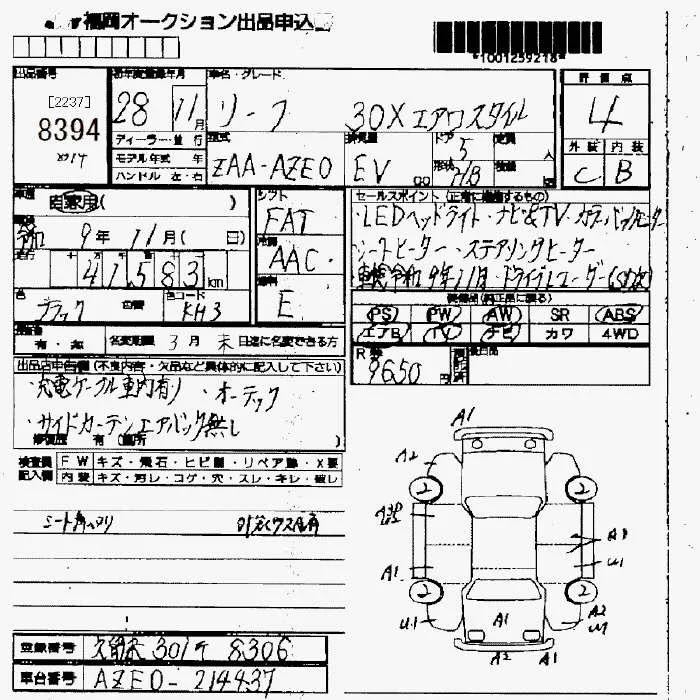 福岡オークション出品申込
*1001259218*
出品番号 初年度登録年月 車名・グレード 評価点
[2237]
8394
28 11月 リーフ 30X エアロスタイル 4
ディーラー・並行 型式 排気量 ドア 定員
モデル年式 年 ZAA-AZE0 EV 5 人 外装 内装
ハンドル 左・右 cc 形状 H/B 積載 C B
車歴 自家用 ( ) シフト FAT
セールスポイント (正常に機能するもの)
・LEDヘッドライト・ナビ&TV・カラーバックモニター
令和 9年 11月 ( 日) 冷房 AAC
・シートヒーター・ステアリングヒーター
走行 41,583 km 燃料 E
車検令和9年11月・ドライブレコーダー
色 ブラック 色替 色コード KH3
装備品 (純正品に限る)
PS PW AW SR ABS
エアB TV ナビ カワ 4WD
有・無 名変期限 3月 末日迄に名変できる方
R券 9650円 後日品
出品店申告欄 (不良内容・欠品など具体的に記入して下さい)
・充電ケーブル車内有り ・オーテック
・サイドカーテンエアバック無し
修復歴 有 (箇所 )
検査員 FW キズ・飛石・ヒビ割・リペア跡・X要
記入欄 内装 キズ・汚レ・コゲ・穴・スレ・キレ・破レ
A1
A2
2 2
A1 U1
2 2
U1 A1 A2
A2 A1
登録番号 久留米 301 テ 8306
車台番号 AZE0-214437